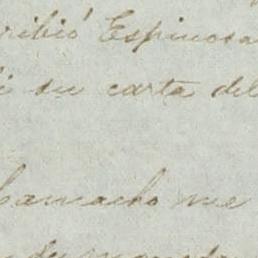 ribió Espinosa
su carta del
Camacho me